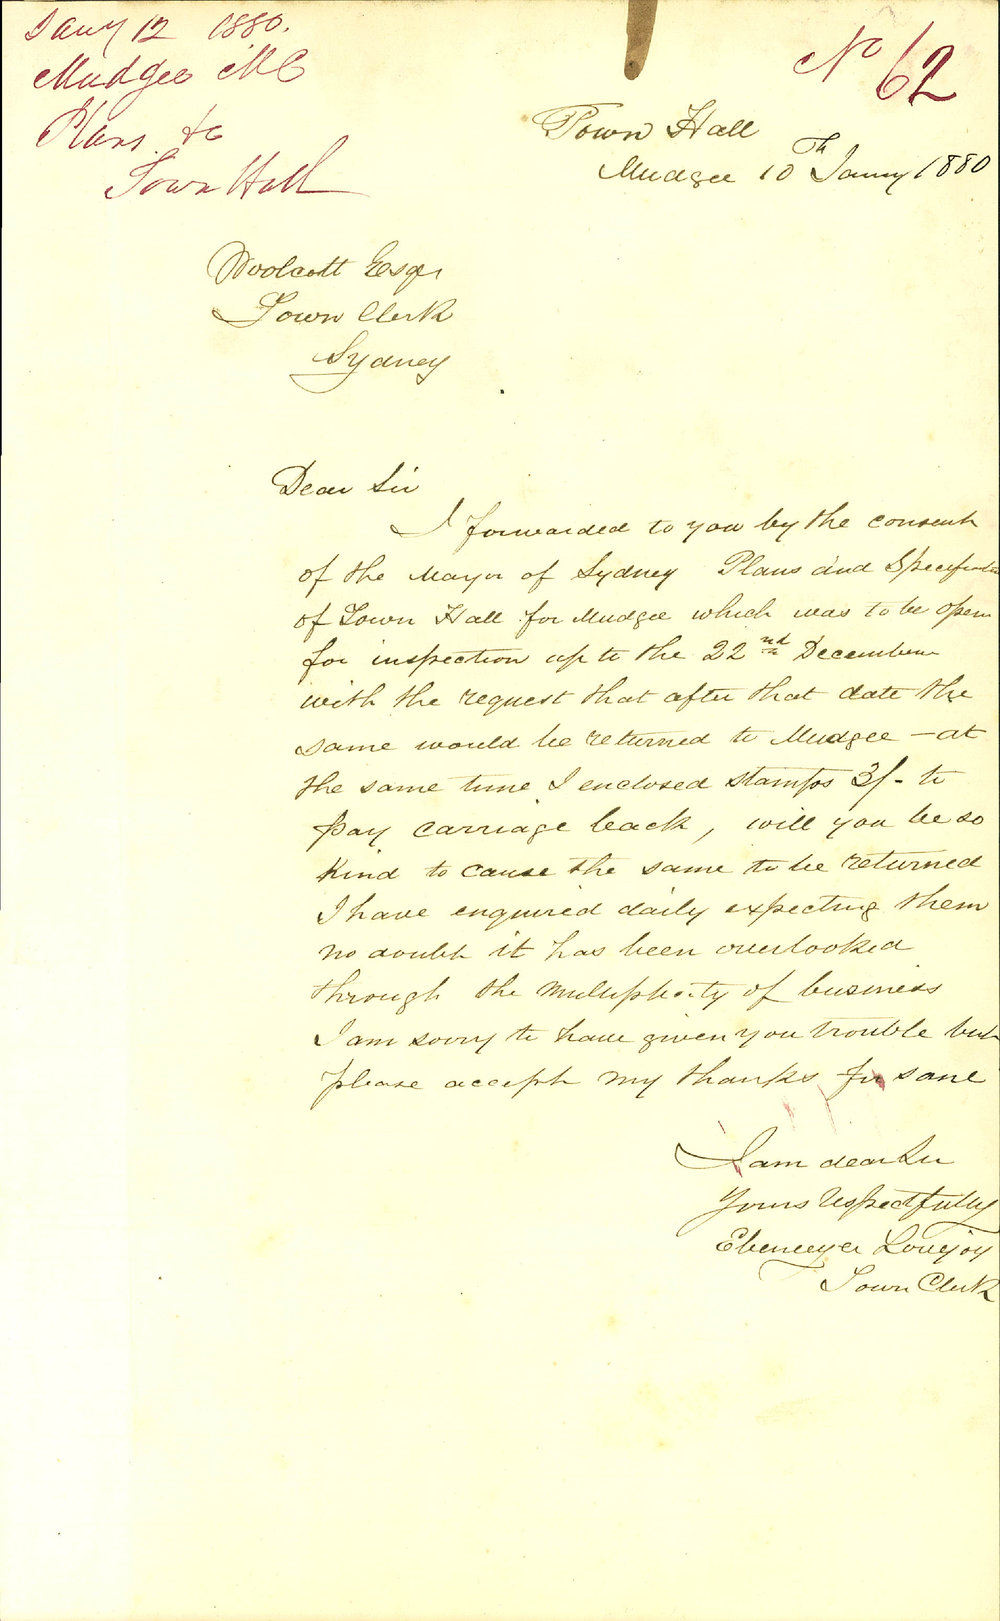 Jany 12 1880.
Mudgee MC
Plans &c
Town Hall
No 62
Town Hall
Mudgee 10th Jany 1880
Woolcott Esqr
Town Clerk
Sydney
Dear Sir
I forwarded to you by the consent
of the Mayor of Sydney Plans and Specifications
of Town Hall for Mudgee which was to be open
for inspection up to the 22nd December
with the request that after that date the
same would be returned to Mudgee – at
the same time I enclosed stamps 3/- to
pay carriage back, will you be so
kind to cause the same to be returned
I have enquired daily expecting them
no doubt it has been overlooked
through the multiplicity of business
I am sorry to have given you trouble but
please accept my thanks for same
I am dear Sir
Yours respectfully
Ebenezer Lovejoy
Town Clerk